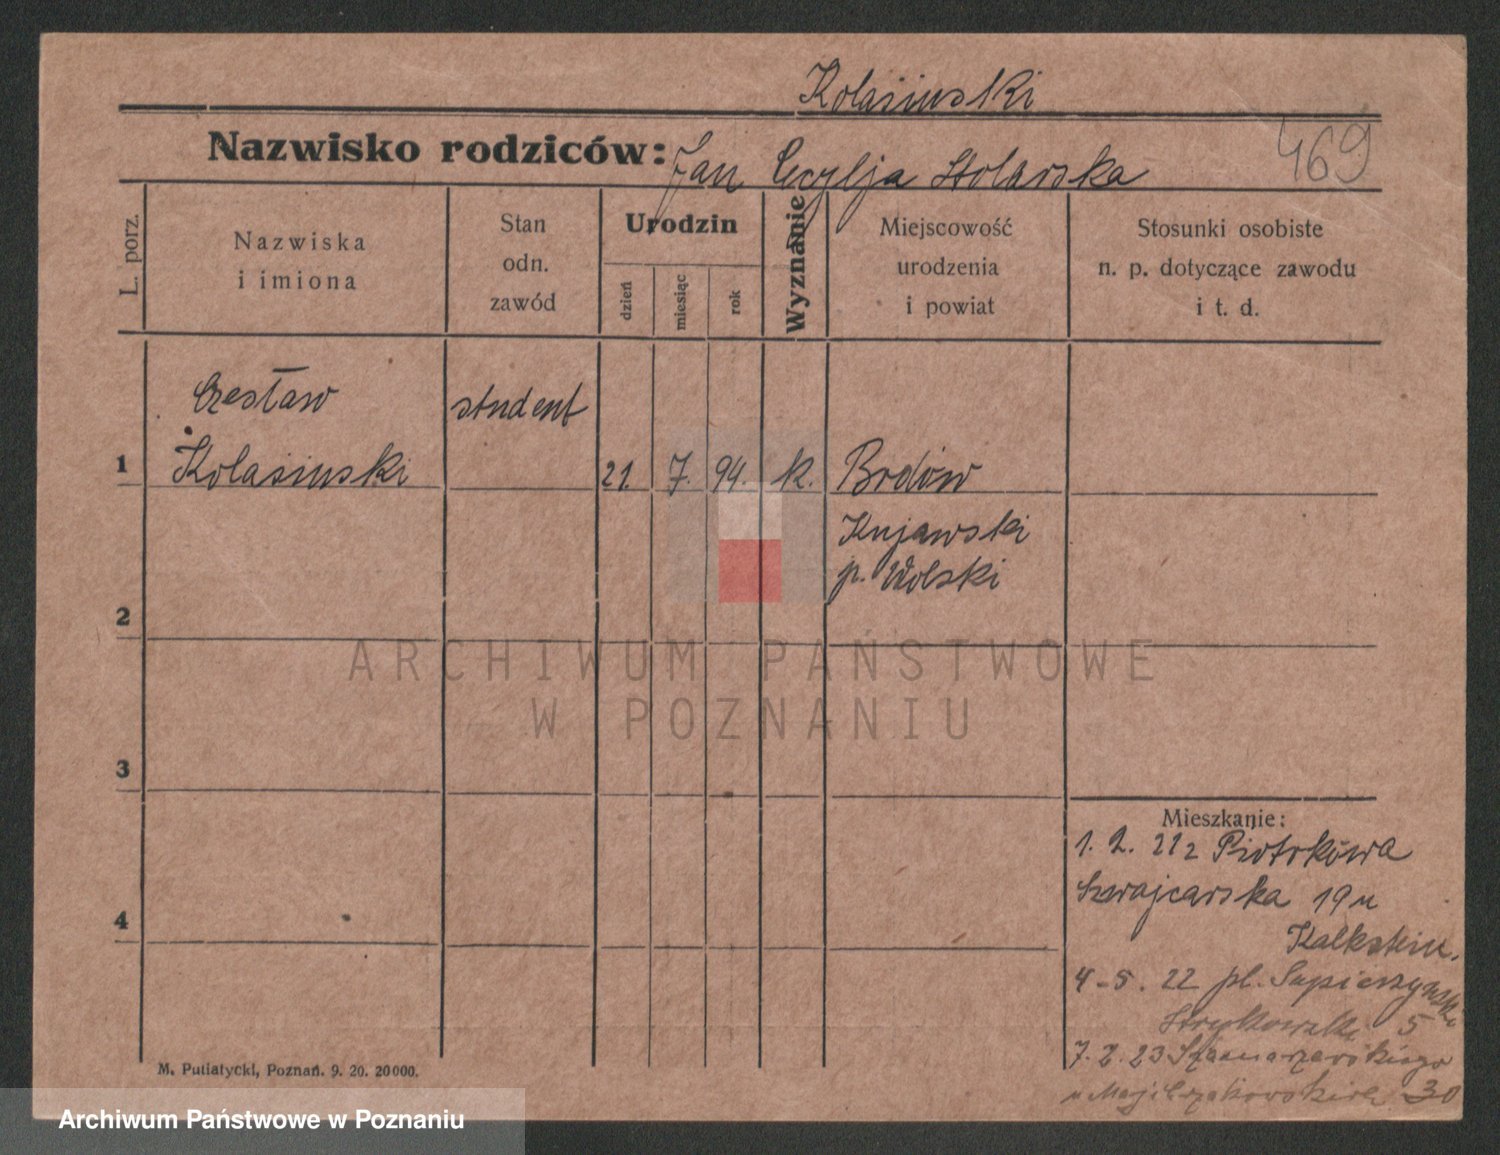 Kolasinski
Nazwisko rodziców: Jan Cecylja Stolarska
469
L. porz.
Nazwiska
i imiona
Stan
odn.
zawód
Urodzin
dzień
miesiąc
rok
Wyznanie
Miejscowość
urodzenia
i powiat
Stosunki osobiste
n. p. dotyczące zawodu
i t. d.
Czesław student
1 Kolasinski 21. 7. 94. k. Brdów
Kujawski
p. Wolski
2
ARCHIWUM PAŃSTWOWE
W POZNANIU
3
Mieszkanie:
1. 2. 21 z Piotrkowa
Szwajcarska 19 u
4 Kalkstein.
4-5. 22 pl. Sapieszyński
Strykowski 5
7. 2. 23 Szamarzewskiego
u 30
M. Putiatycki, Poznań. 9. 20. 20000.
Archiwum Państwowe w Poznaniu